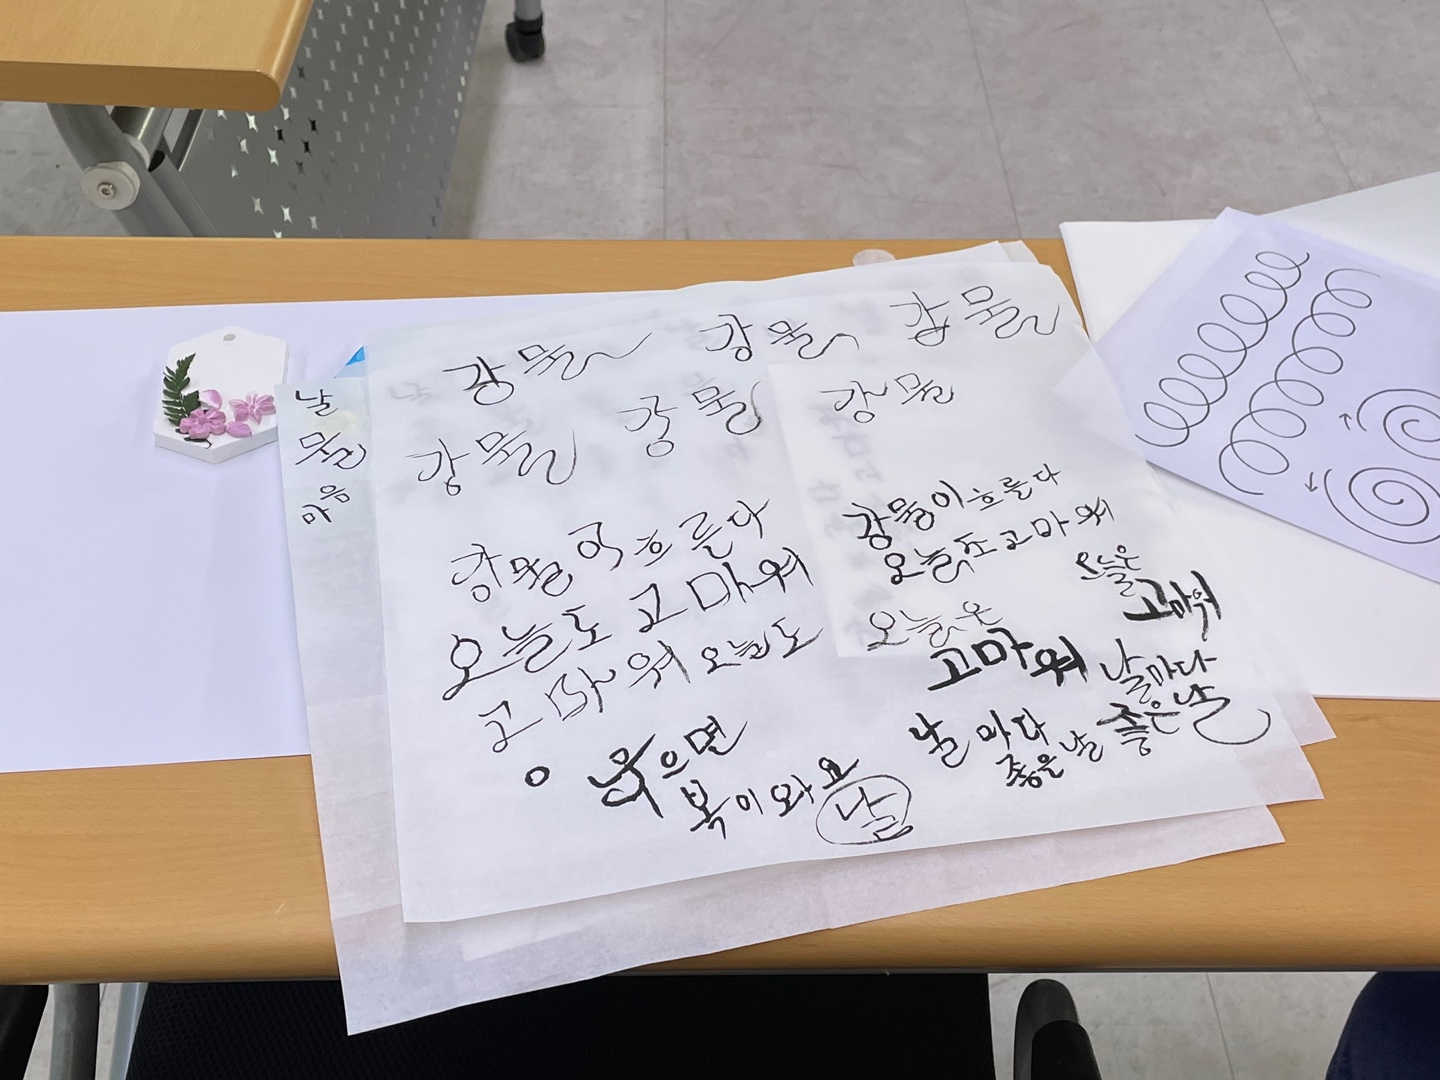 강물 강물 강물
강물 강물 강물
강물이 흐른다
오늘도 고마워
고마워 오늘도
웃으면
복이와요
날
강물이 흐른다
오늘도 고마워
오늘은
고마워
오늘은
고마워
날마다
좋은날
날마다
좋은날
날
물
마음